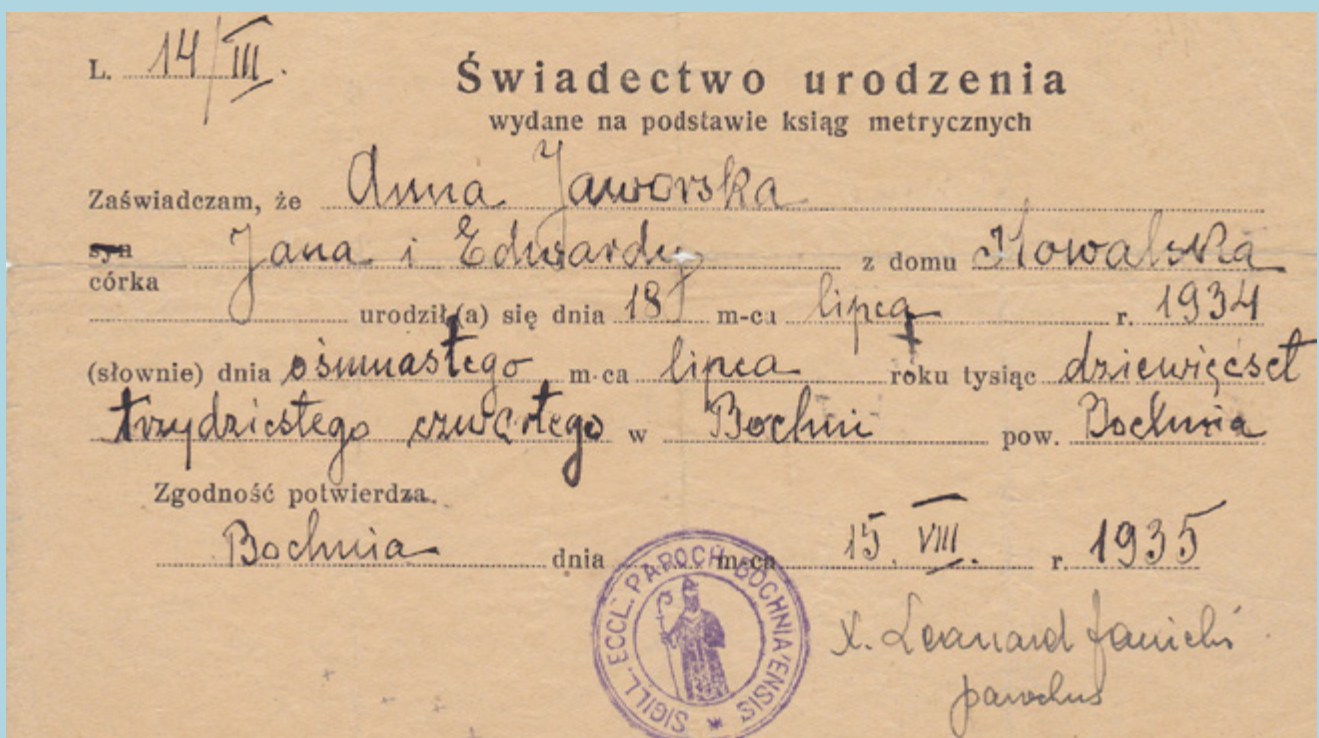 L. 14/III.
Świadectwo urodzenia
wydane na podstawie ksiąg metrycznych
Zaświadczam, że Anna Jaworska
syn Jana i Edwardy z domu Kowalska
córka
urodził (a) się dnia 18 m-ca lipca r. 1934
(słownie) dnia ośmnastego m-ca lipca roku tysiąc dziewięćset
trzydziestego czwartego w Bochni pow. Bochnia
Zgodność potwierdza.
Bochnia dnia m-ca 15. VIII. r. 1935
SIGILL. ECCL. PAROCH. BOCHNIA/ENSIS *
X. Leonard Janicki
parochus